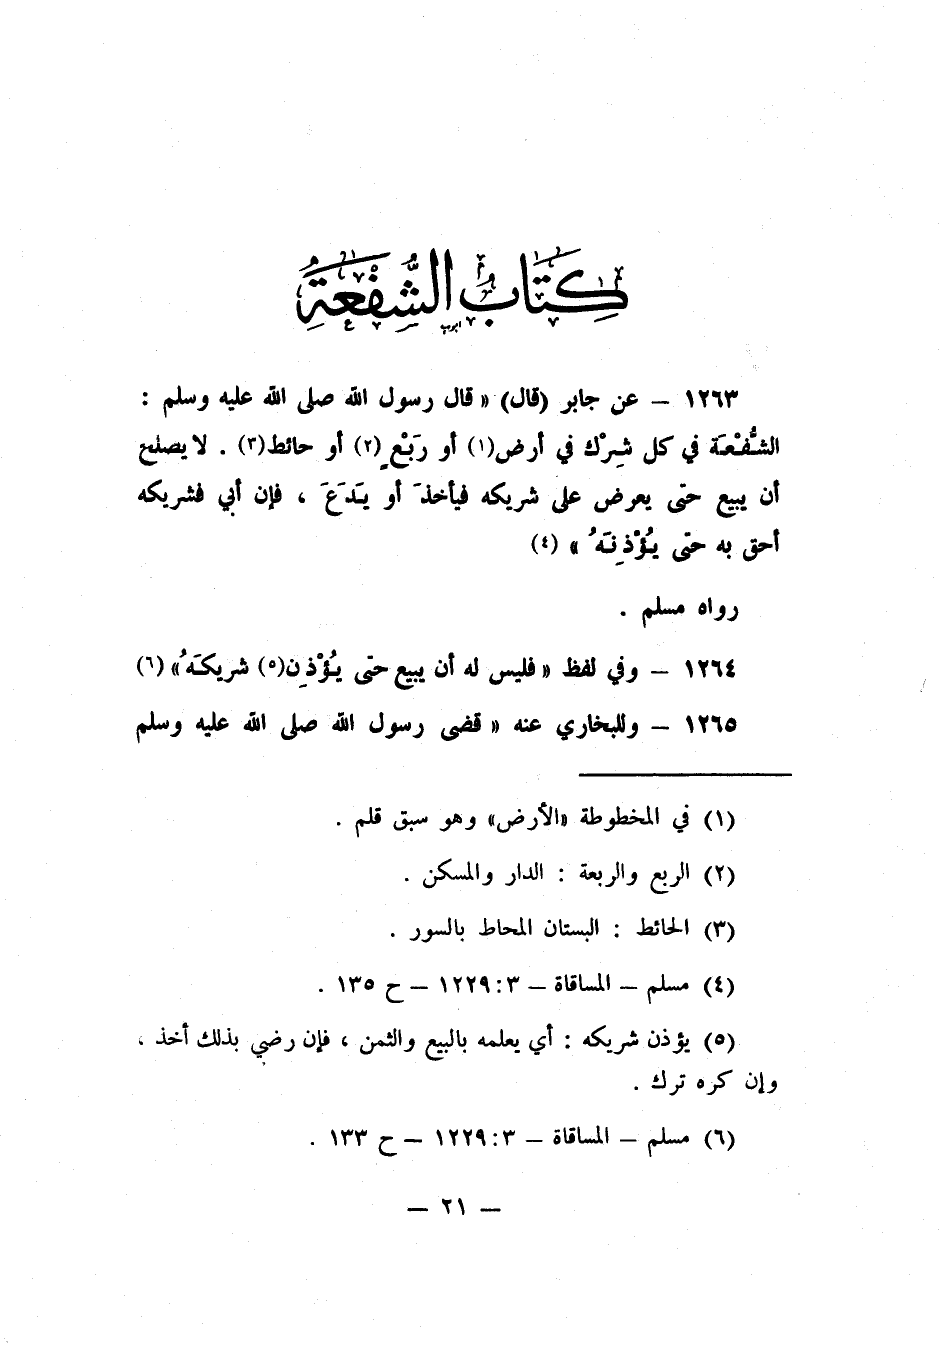 كِتَابُ الشُّفْعَةِ
١٢٦٣ – عن جابر (قال) « قال رسول الله صلى الله عليه وسلم :
الشُّفْعَة في كل شِرْك في أرض(١) أو رَبْعٍ(٢) أو حائط(٣) . لا يصلح
أن يبيع حتى يعرض على شريكه فيأخذَ أو يَدَعَ ، فإن أبي فشريكه
أحق به حتى يُؤْذِنَهُ » (٤)
رواه مسلم .
١٢٦٤ – وفي لفظ « فليس له أن يبيع حتى يُؤْذِن(٥) شريكَهُ» (٦)
١٢٦٥ – وللبخاري عنه « قضى رسول الله صلى الله عليه وسلم
(١) في المخطوطة «الأرض» وهو سبق قلم .
(٢) الربع والربعة : الدار والمسكن .
(٣) الحائط : البستان المحاط بالسور .
(٤) مسلم – المساقاة – ٣ : ١٢٢٩ – ح ١٣٥ .
(٥) يؤذن شريكه : أي يعلمه بالبيع والثمن ، فإن رضي بذلك أخذ ،
وإن كره ترك .
(٦) مسلم – المساقاة – ٣ : ١٢٢٩ – ح ١٣٣ .
– ٢١ –